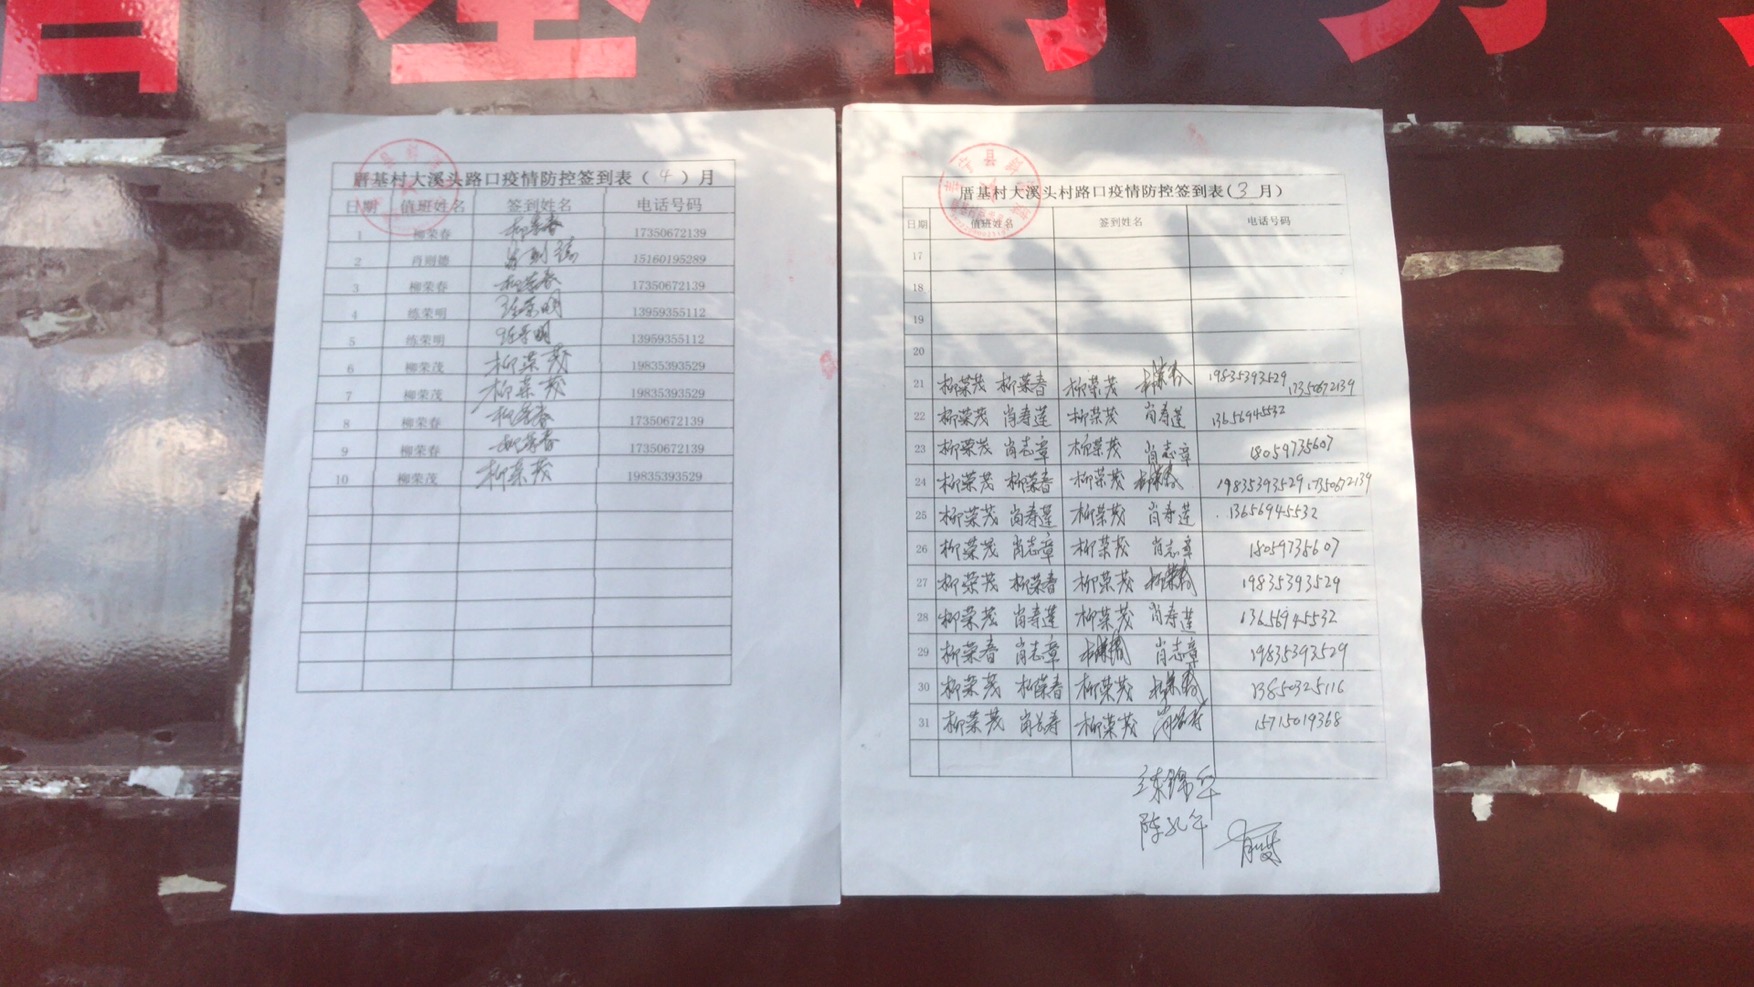 厝基村大溪头路口疫情防控签到表（4）月
日期 值班姓名 签到姓名 电话号码
1 柳荣春 柳荣春 17350672139
2 肖则德 15160195289
3 柳荣春 柳荣春 17350672139
4 练荣明 练荣明 13959355112
5 练荣明 练荣明 13959355112
6 柳荣茂 柳荣茂 19835393529
7 柳荣茂 柳荣茂 19835393529
8 柳荣春 柳荣春 17350672139
9 柳荣春 柳荣春 17350672139
10 柳荣茂 柳荣茂 19835393529
厝基村大溪头村路口疫情防控签到表(3月)
日期 值班姓名 签到姓名 电话号码
17
18
19
20
21 柳荣茂 柳荣春 柳荣茂 柳荣春 19835393529 17350672139
22 柳荣茂 肖寿莲 柳荣茂 肖寿莲 13656945532
23 柳荣茂 肖志章 柳荣茂 肖志章 18059735607
24 柳荣茂 柳荣春 柳荣茂 柳荣春 19835393529 17350672139
25 柳荣茂 肖寿莲 柳荣茂 肖寿莲 13656945532
26 柳荣茂 肖志章 柳荣茂 肖志章 18059735607
27 柳荣茂 柳荣春 柳荣茂 柳荣春 19835393529
28 柳荣茂 肖寿莲 柳荣茂 肖寿莲 13656945532
29 柳荣春 肖志章 肖志章 19835393529
30 柳荣茂 柳荣春 柳荣茂 柳荣春 13850325116
31 柳荣茂 肖长寿 柳荣茂 15715019368
练锦华